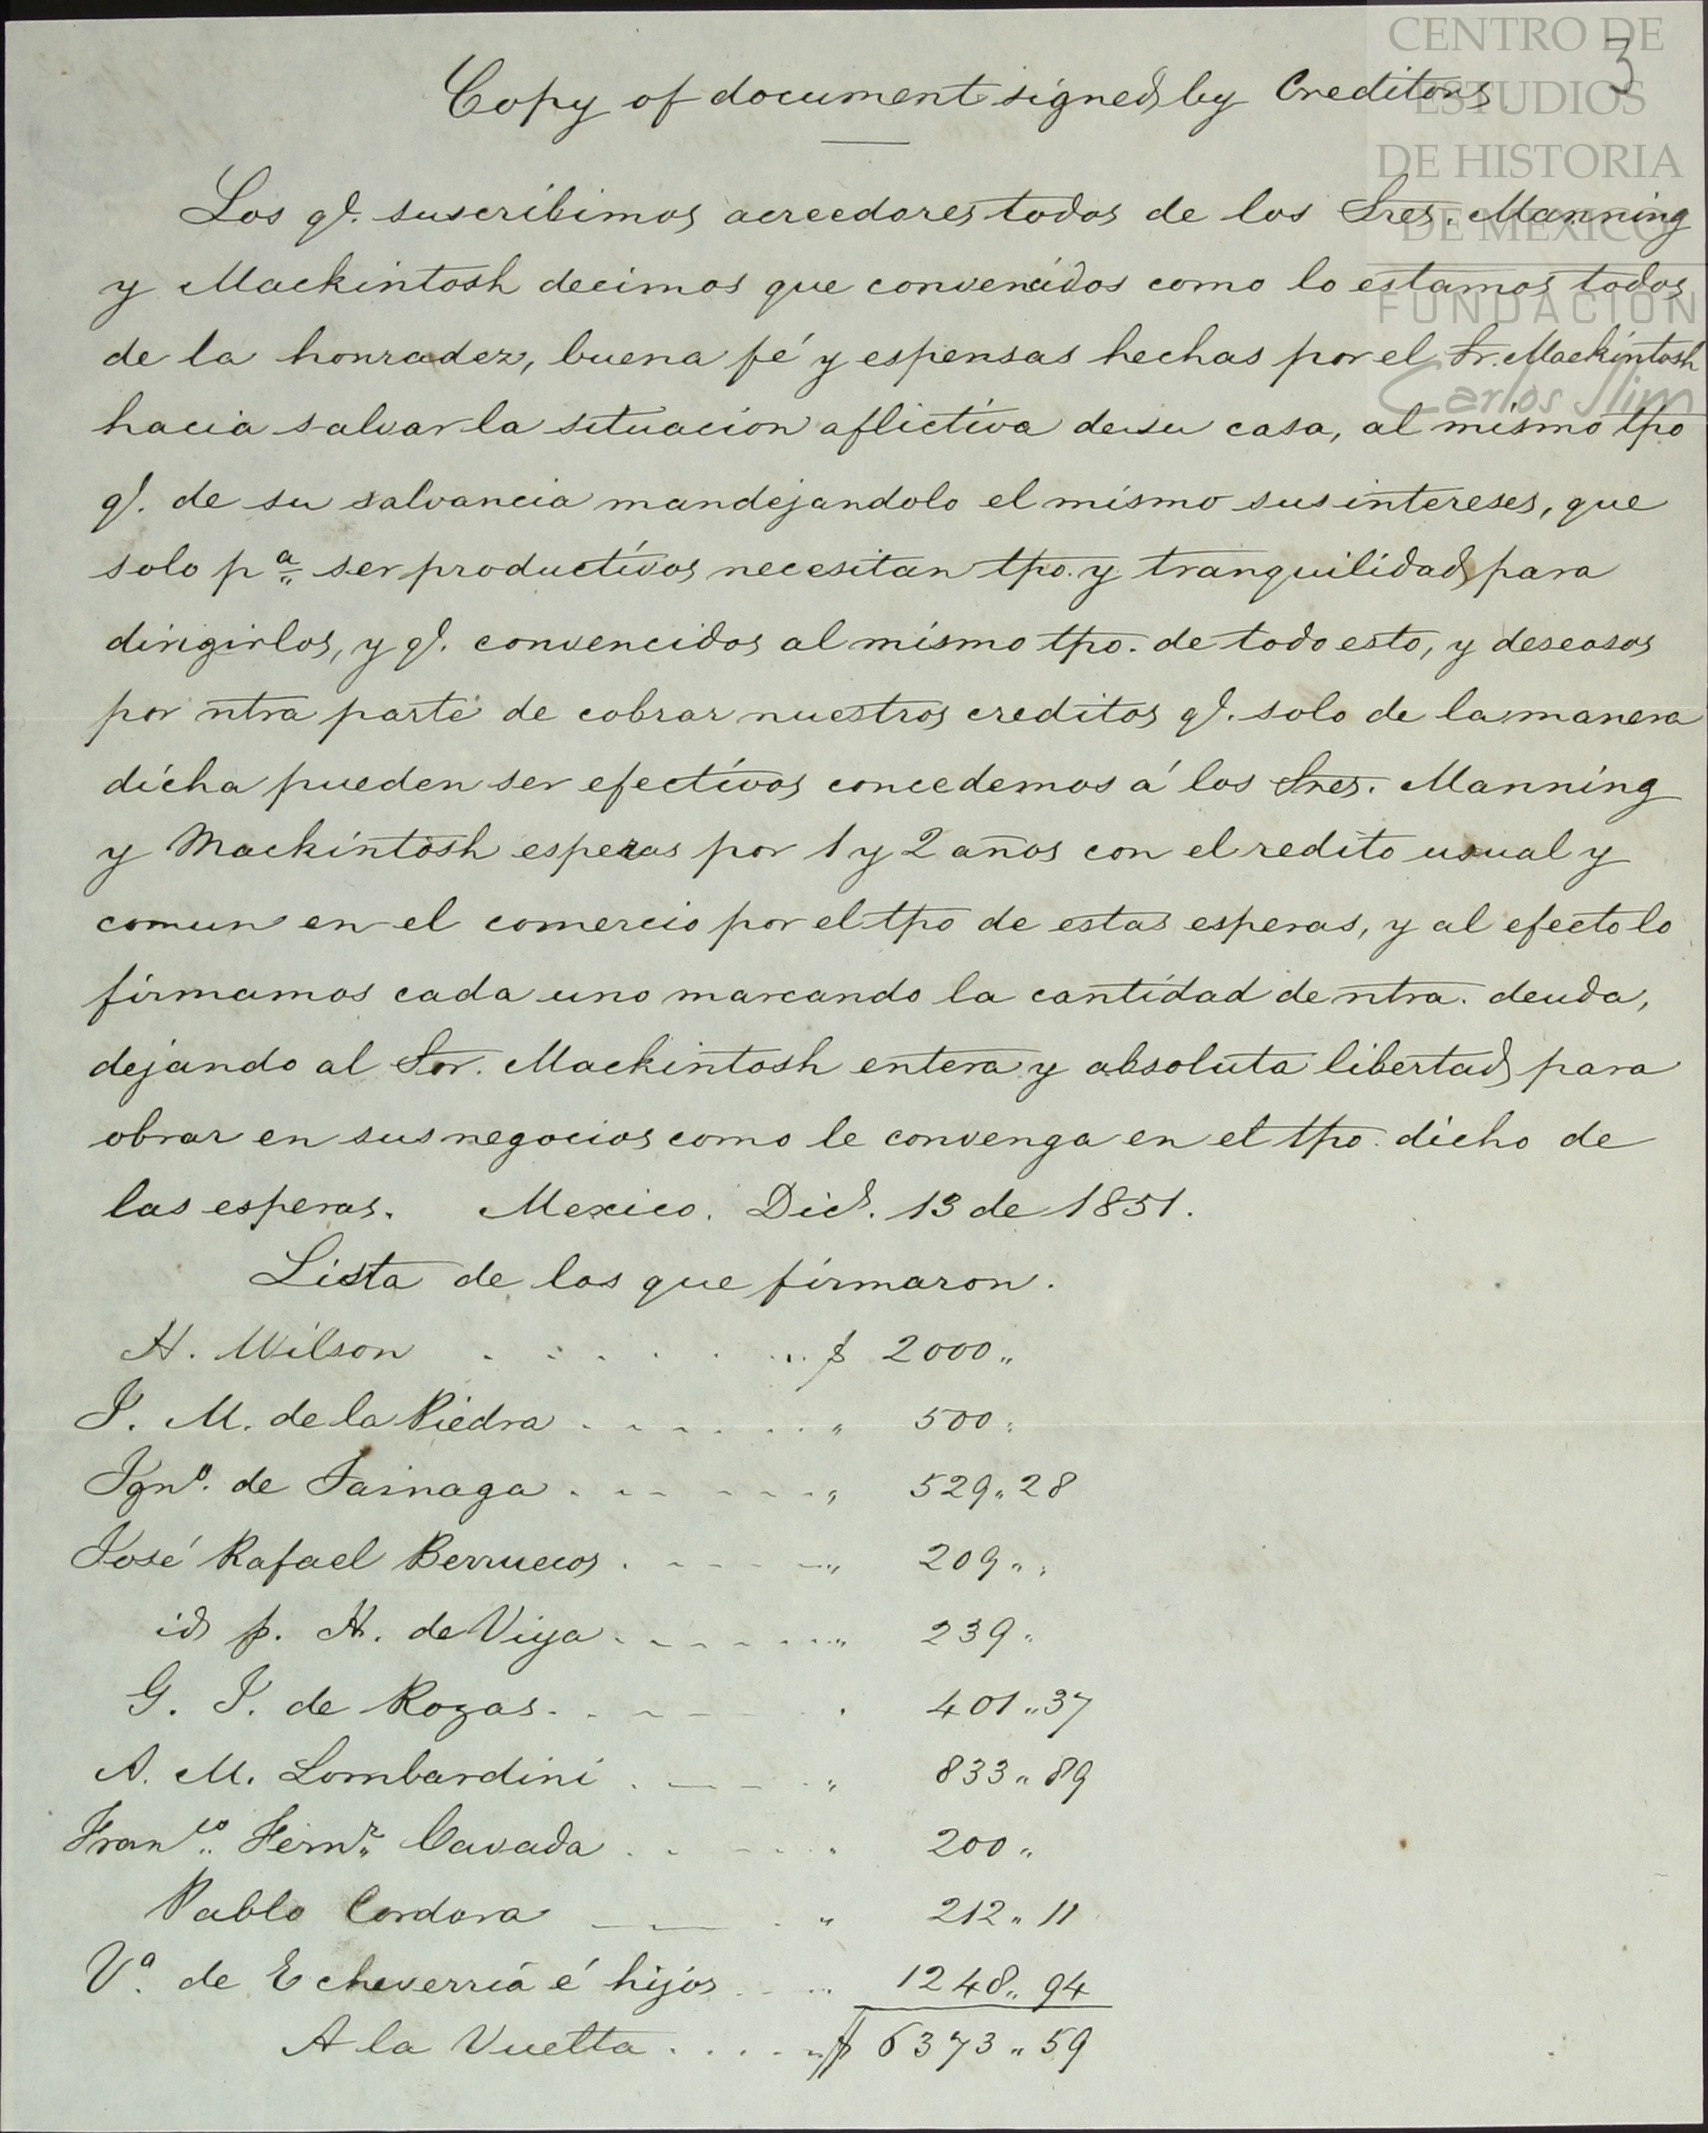 CENTRO DE
ESTUDIOS
DE HISTORIA
DE MÉXICO
FUNDACIÓN
Carlos Slim
3
Copy of document signed by Creditors
Los qe. suscribimos acreedores todos de los Sres. Manning
y Mackintosh decimos que convencidos como lo estamos todos
de la honradez, buena fé y espensas hechas por el Sr. Mackintosh
hacia salvar la situacion aflictiva de su casa, al mismo tpo
qe. de su salvancia mandejandolo el mismo sus intereses, que
solo pa. ser productivos necesitan tpo. y tranquilidad para
dirigirlos, y qe. convencidos al mismo tpo. de todo esto, y deseosos
por ntra parte de cobrar nuestros creditos qe. solo de la manera
dicha pueden ser efectivos concedemos á los Sres. Manning
y Mackintosh esperas por 1 y 2 años con el redito usual y
comun en el comercio por el tpo de estas esperas, y al efecto lo
firmamos cada uno marcando la cantidad de ntra. deuda,
dejando al Sor. Mackintosh entera y absoluta libertad para
obrar en sus negocios como le convenga en el tpo. dicho de
las esperas. Mexico. Dice. 13 de 1851.
Lista de los que firmaron.
H. Wilson . . . . . . . $ 2000 "
J. M. de la Piedra . . . . . . . " 500 "
Igno. de Jainaga . . . . . . . " 529 " 28
José Rafael Berruecos . . . . . . " 209 " "
id p. H. de Viya . . . . . . . " 239 "
G. J. de Rozas . . . . . . . 401 " 37
A. M. Lombardini . . . . . " 833 " 89
Franco. Fernz. Cavada . . . . . " 200 "
Pablo Cordova . . . . " 212 " 11
Va. de Echeverria é hijos . . . " 1248 " 94
A la Vuelta . . . . . $ 6373 " 59